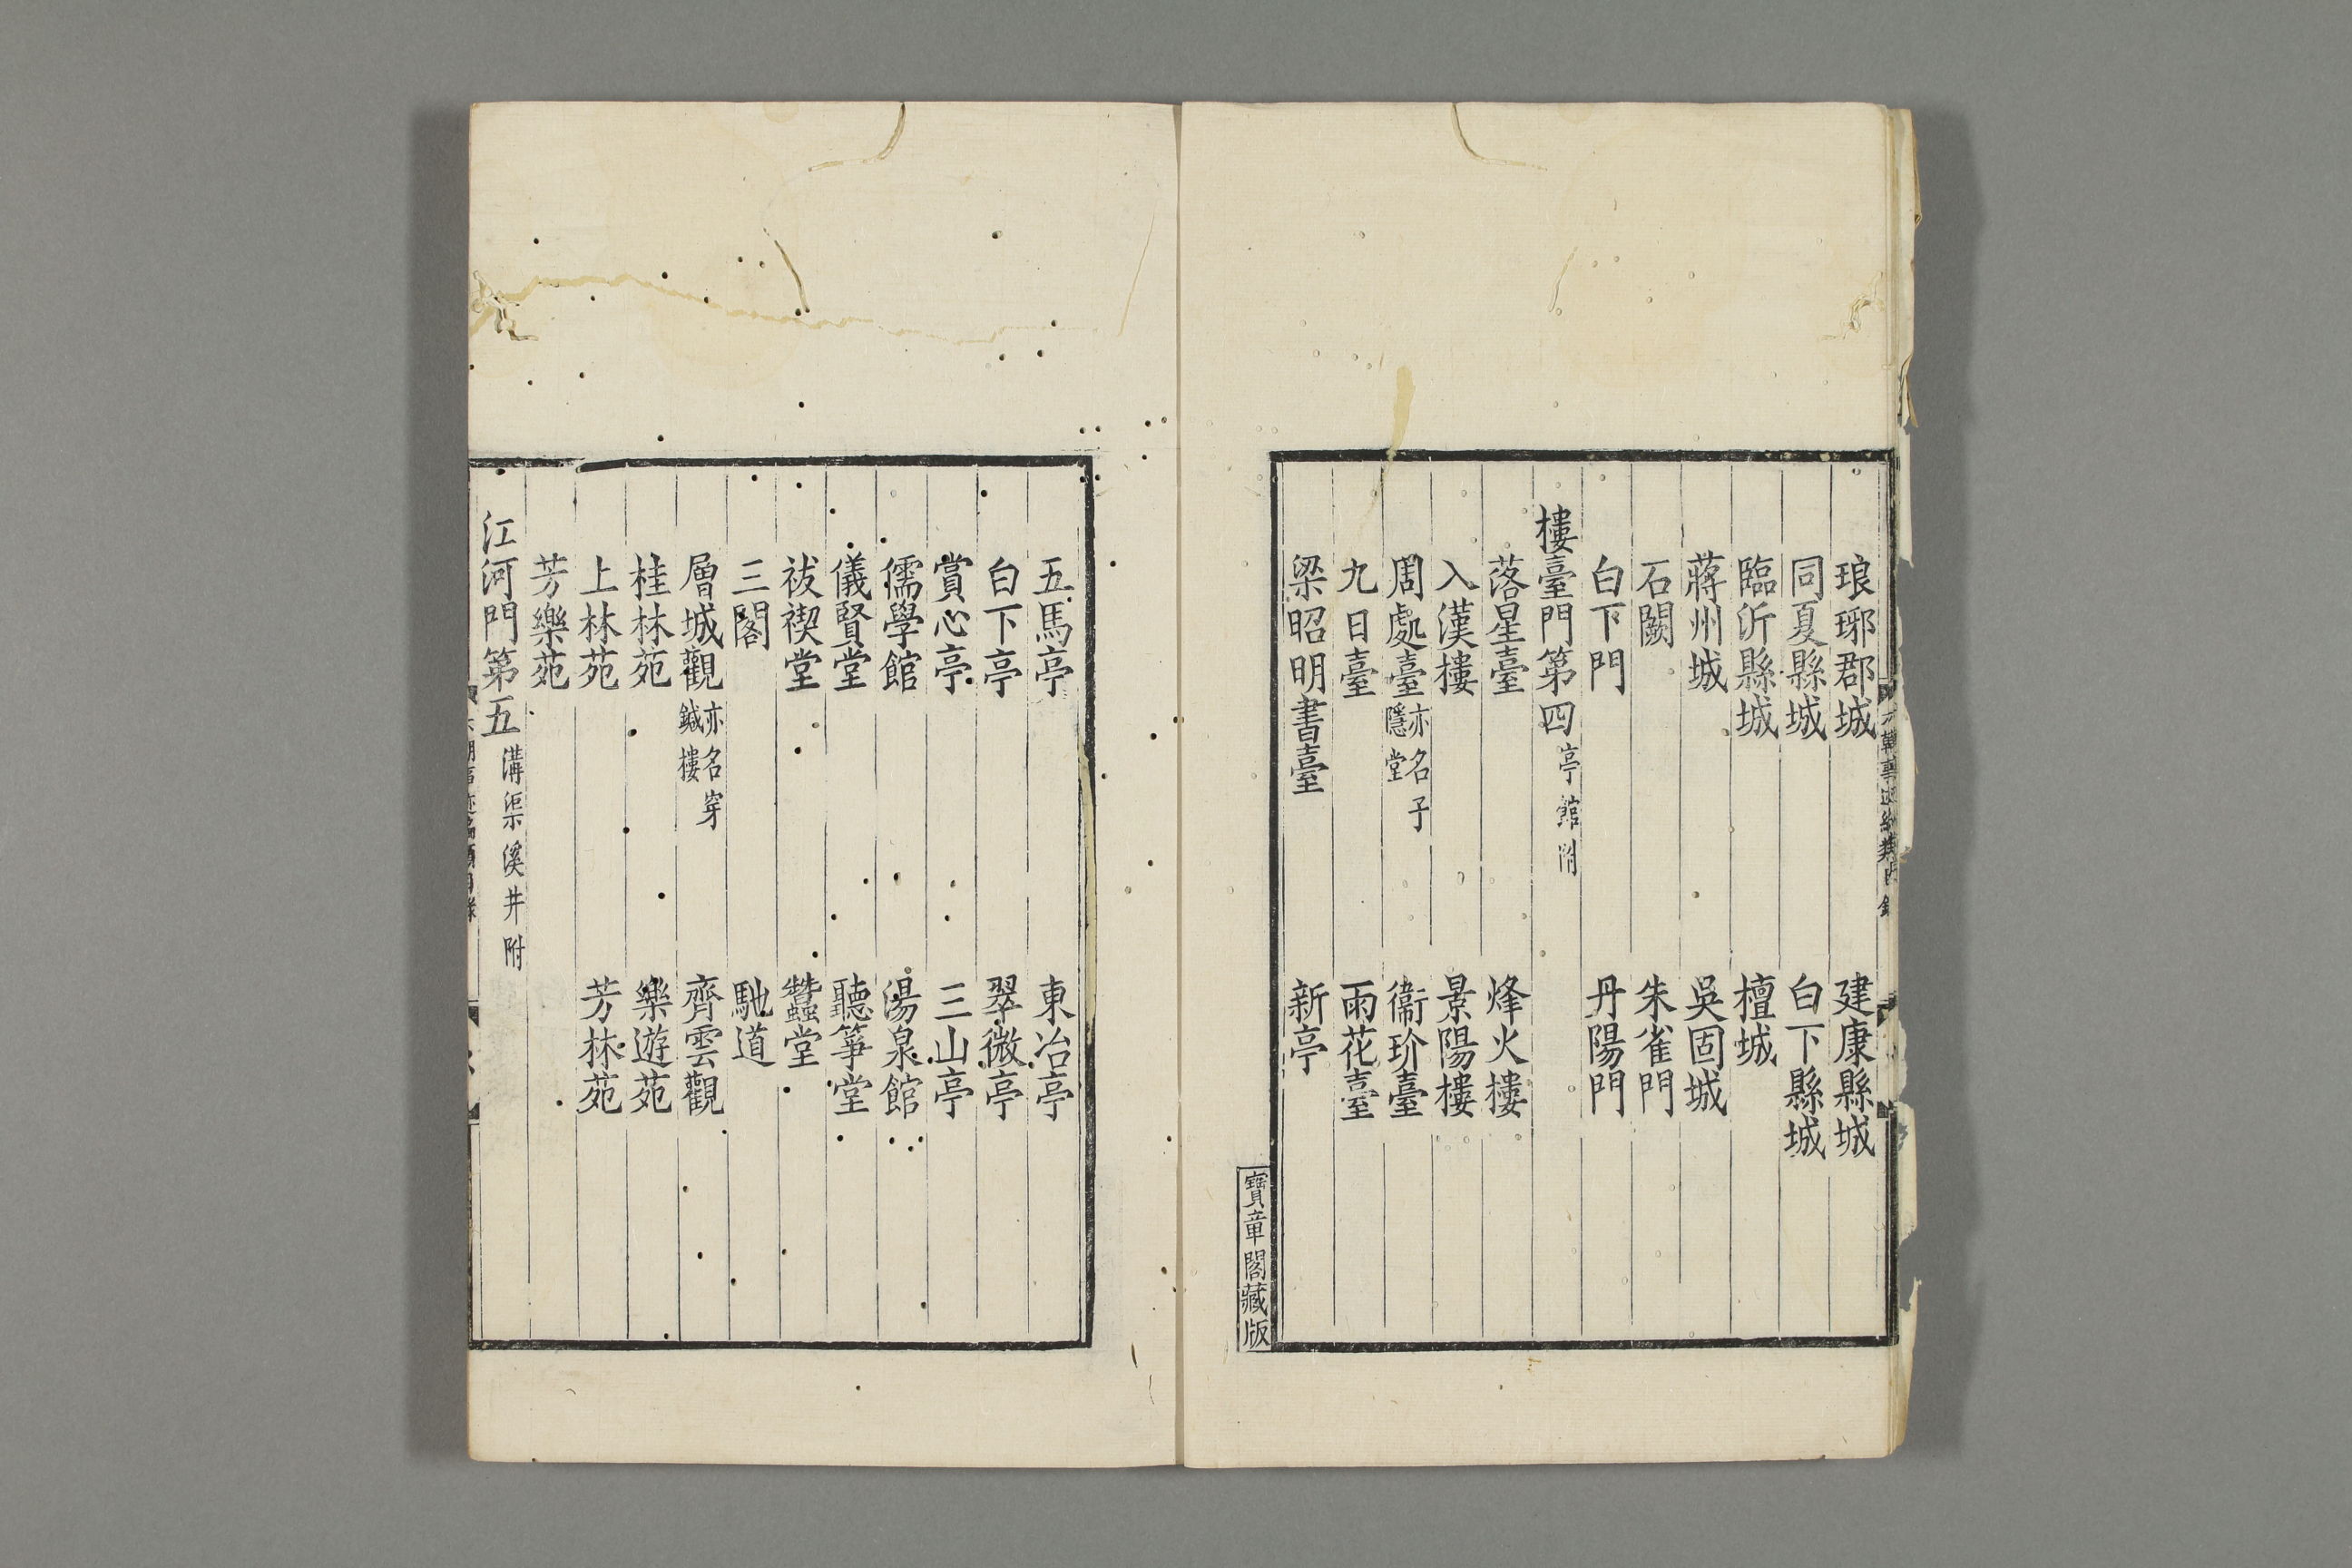 琅琊郡城　建康縣城
同夏縣城　白下縣城
臨沂縣城　檀城
蔣州城　吳固城
石闕　朱雀門
白下門　丹陽門
樓臺門第四亭館附
落星臺　烽火樓
入漢樓　景陽樓
周處臺亦名子隱堂　衞玠臺
九日臺　雨花臺
梁昭明書臺　新亭
寶章閣藏版
五馬亭　東冶亭
白下亭　翠微亭
賞心亭　三山亭
儒學館　湯泉館
儀賢堂　聽箏堂
祓禊堂　蠶堂
三閣　馳道
層城觀亦名穿鍼樓　齊雲觀
桂林苑　樂遊苑
上林苑　芳林苑
芳樂苑
江河門第五溝渠溪井附